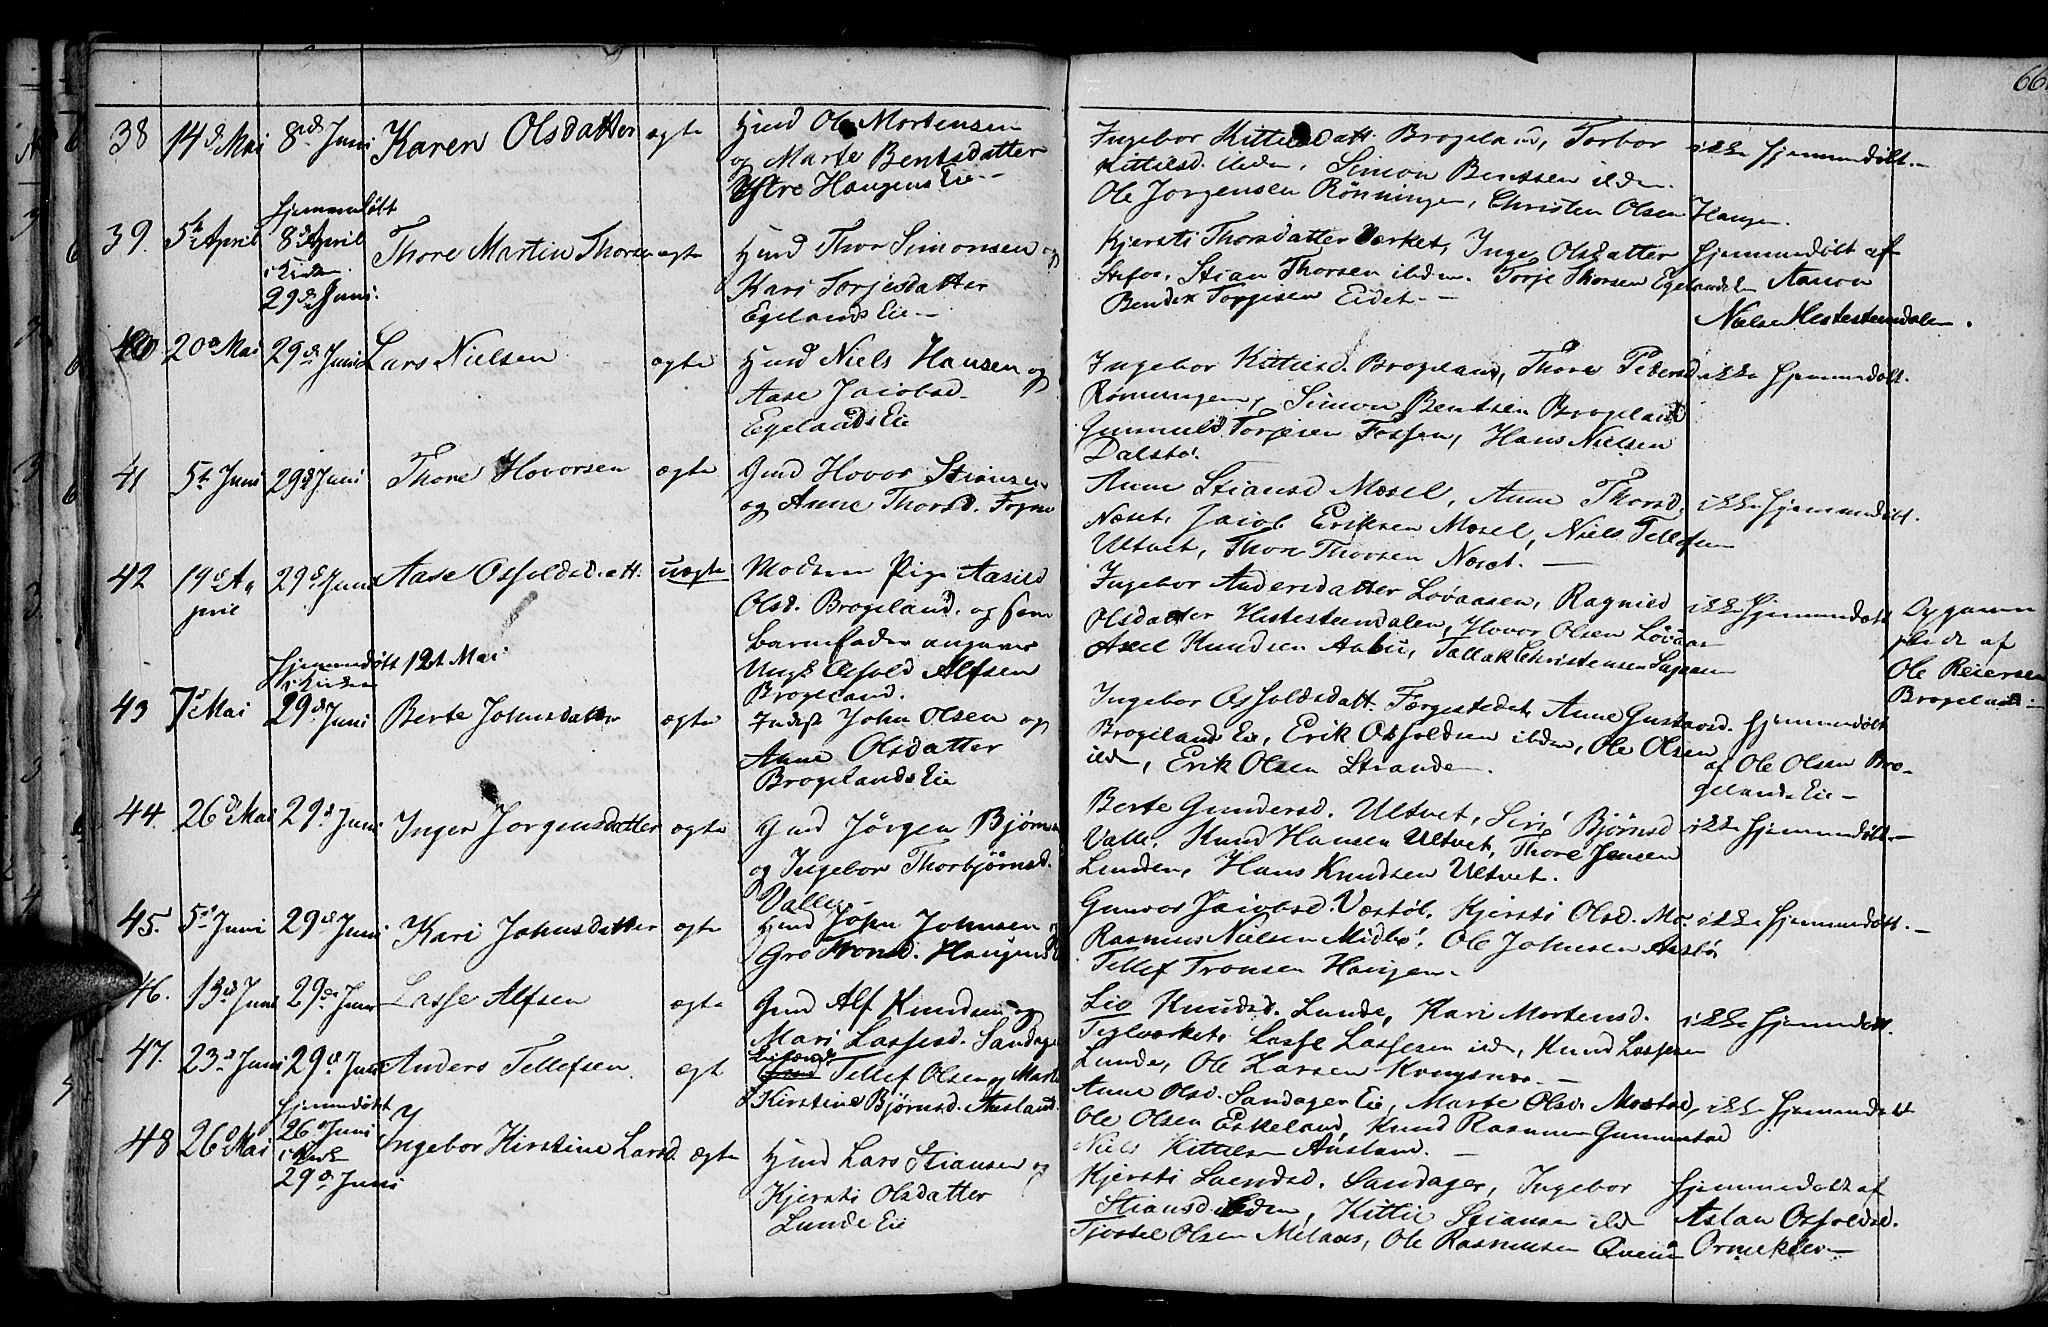 66
38 14d Mai 8de Juni Karen Olsdatter ægte Hmd Ole Mortensen
og Marte Bentsdatter
Ystre Haugens Eie
Ingebor Kittilsdatt. Brogeland, Torbor
Kittilsd. ibdm, Simon Bentsen ibdm
Ole Jorgensen Rönningen, Christen Olsen Haugen.
ikke hjemmedøbt.
39. 5te April hjemmedøbt
8de April
i Kirken
29de Juni.
Thore Martin Thorsen ægte Hmd Thor Simonsen og
Kari Torjesdatter
Egelands Eie
Kjersti Thorsdatter Værket, Inger Olsdatter
Stian Thorsen ibdm. Torje Thorsen Egeland
Bendix Torgisen Eidet.
hjemmedøbt af
Aanon
Nielsen Hestestemdalen.
40 20de Mai 29de Juni Lars Nielsen ægte Hmd Niels Hansen og
Aase Jacobsd.
Egelands Eie
Ingebor Kittilsd. Brogeland, Thore Petersd.
Rönningen, Simon Bentsen Brogeland
Gunnuld Torjesen Fossen, Hans Nielsen
Dalstø.
ikke hjemmedøbt.
41 5te Juni 29de Juni Thore Hovorsen ægte Gmd Hovor Stiansen
og Anne Thorsd. Fogne
Anne Stiansd Mosel, Anne Thorsd.
Næset, Jacob Eriksen Mosel, Niels Tellefsen
Ultvet, Thor Thorsen Næset.
ikke hjemmedøbt.
42 19de A-
pril
29de Juni Aase Osfoldsdatt. uægte Moderen Pige Aasild
Olsd. Brogeland, og som
barnefader angiver
Ungk Osfold Alfsen
Brogeland.
Ingebor Andersdatter Løvaasen, Ragnild
Olsdatter Hestestemdalen, Hovor Olsen Løvaas
Axel Knudsen Aabu, Tallak Christensen
ikke hjemmedøbt
Opgaven
skede af
Ole Reiersen
Brogeland
43 7de Mai hjemmedøbt 12te Mai
i Kirken
29de Juni Berte Johnsdatter ægte Inderst John Olsen og
Anne Olsdatter
Brogelands Eie
Ingebor Osfoldsdatt. Færgestedet, Anne Gustavsd.
Brogelands Eie, Erik Osfoldsen ibdm, Ole Olsen
ibdm, Erik Olsen Strande.
hjemmedøbt
af Ole Olsen Bro-
gelands Eie
44. 26de Mai 29de Juni Inger Jorgensdatter ægte Gmd Jørgen Bjørnsen
og Ingebor Thorbjørnsd.
Valle
Berte Gundersd. Ultvet, Siri Bjørnsd
Valle, Knud Hansen Ultvet, Thore Jensen
Lunden, Hans Knudsen Ultvet.
ikke hjemmedøbt
45. 5te Juni 29de Juni Kari Johnsdatter ægte Hmd John Johnsen og
Gro Tronsd. Haugen
Gunvor Jacobsd. Væstøl, Kjersti Olsd. Mo.
Rasmus Nielsen Midbø, Ole Johnsen
Tellef Tronsen Haugen
ikke hjemmedøbt.
46. 13de Juni 29de Juni Lasse Alfsen ægte Gmd Alf Knudsen og
Mari Lassesd. Sandager
Liv Knudsd. Lunde, Kari Mortensd.
Teglværket, Lasse Lassesen ibdm, Knud Lassesen
Lunde, Ole Larsen
ikke hjemmedøbt.
47. 23de Juni 29de Juni Anders Tellefsen ægt Tellef Olsen og Marte
Kirstine Bjørnsd. Ausland.
Anne Olsd. Sandager Eie, Marte Olsd.
Ole Olsen Eskeland, Knud Rasmusen Gunnerstad
Niels Kittilsen Ausland.
ikke hjemmedøbt
48 26de Mai hjemmedøbt
26de Juni
i Kirken
29de Juni
Ingebor Kirstine Larsd. ægte Hmd Lars Stiansen og
Kjersti Olsdatter
Lunde Eie
Kjersti Svendsd. Sandager, Ingebor
Stiansd ibdm, Kittil Stiansen ibdm
Tjøstel Olsen Melaas, Ole Rasmusen
hjemmedøbt af
Aslan Osfoldsd.
Ormeklev